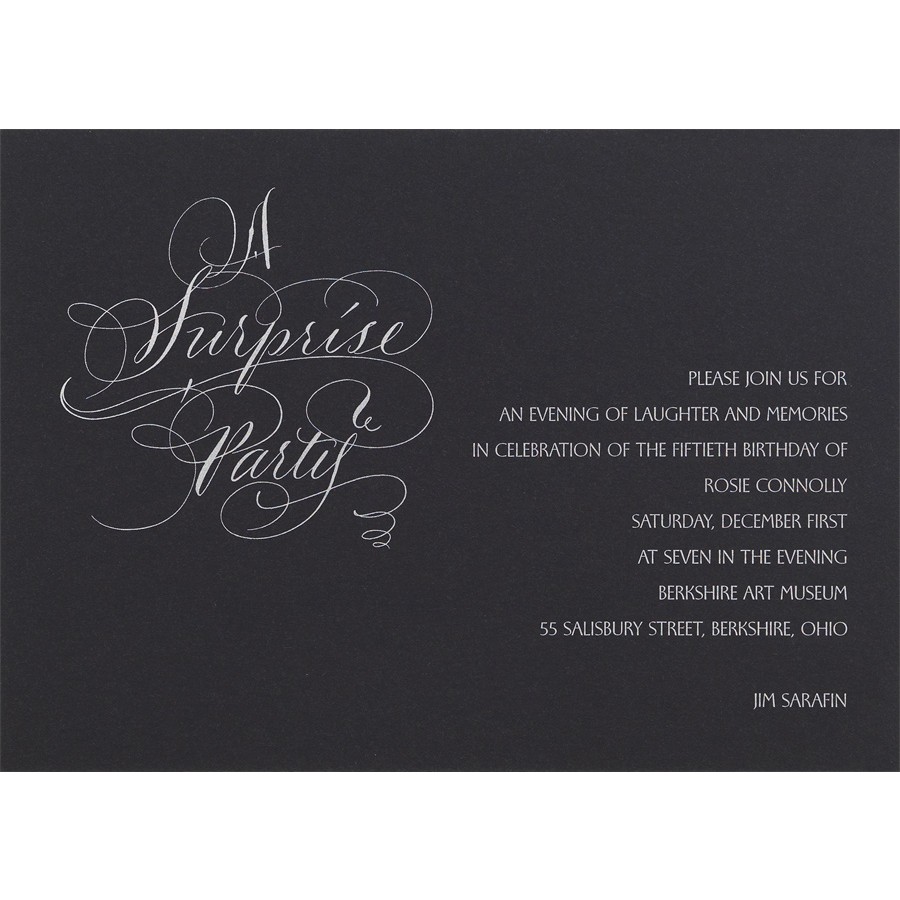 A
Surprise
Party
PLEASE JOIN US FOR
AN EVENING OF LAUGHTER AND MEMORIES
IN CELEBRATION OF THE FIFTIETH BIRTHDAY OF
ROSIE CONNOLLY
SATURDAY, DECEMBER FIRST
AT SEVEN IN THE EVENING
BERKSHIRE ART MUSEUM
55 SALISBURY STREET, BERKSHIRE, OHIO
JIM SARAFIN